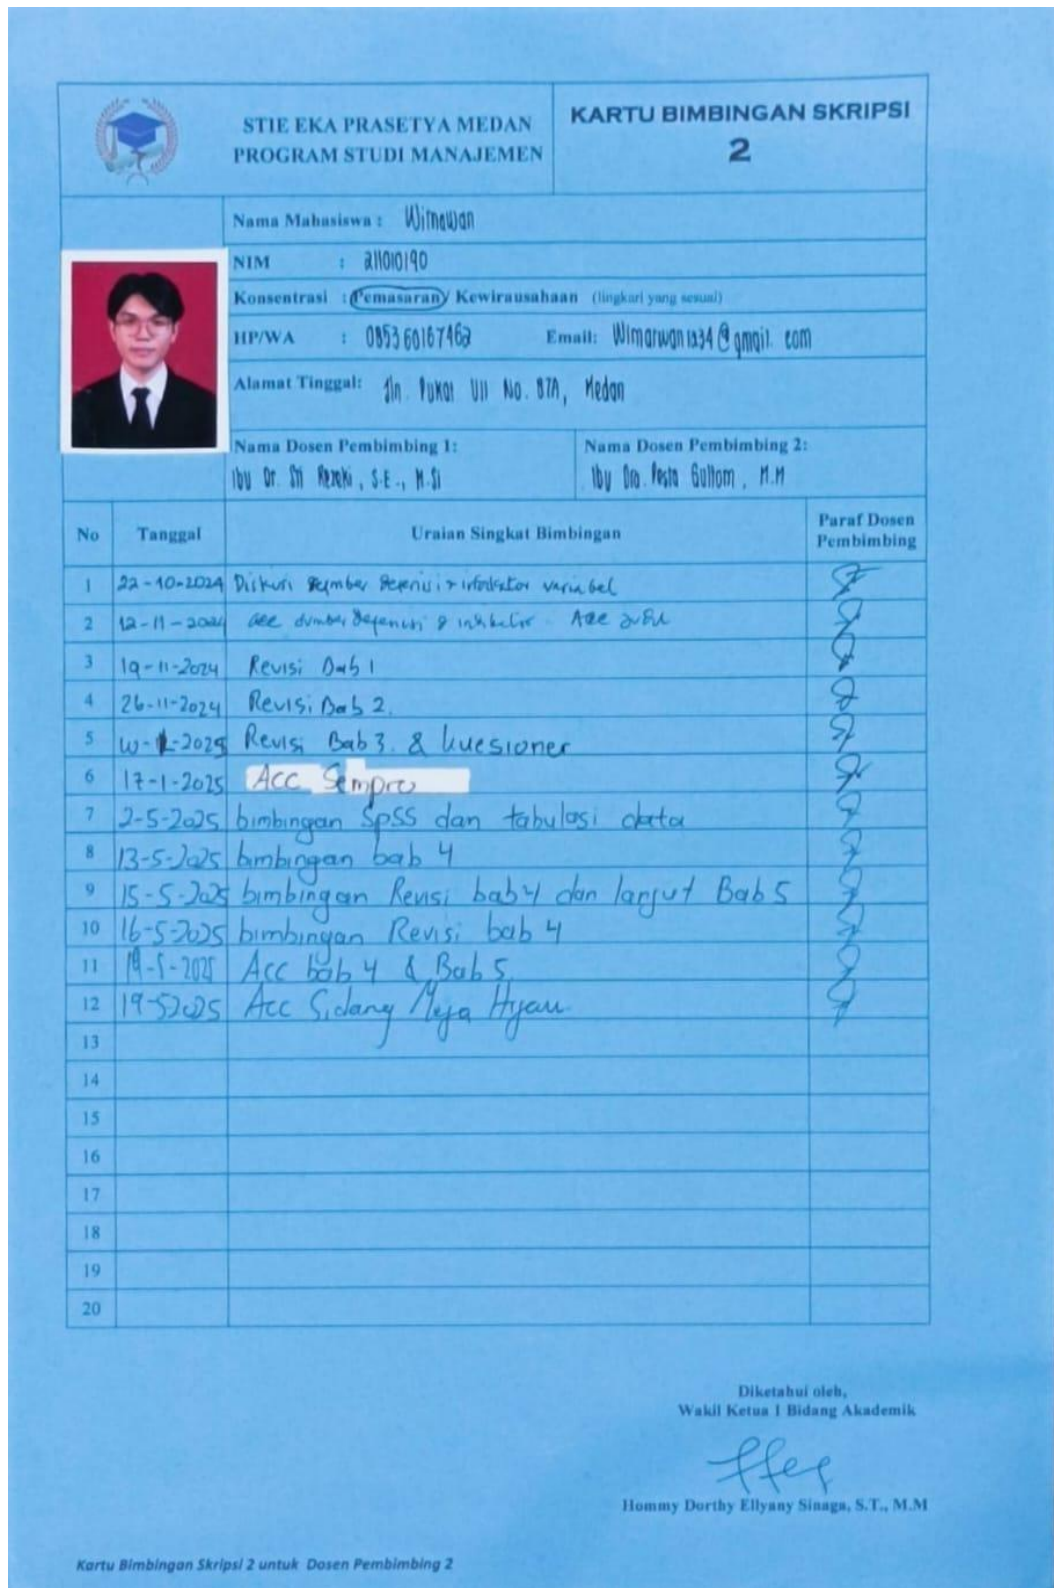 STIE EKA PRASETYA MEDAN
PROGRAM STUDI MANAJEMEN
KARTU BIMBINGAN SKRIPSI
2
Nama Mahasiswa :
NIM : 211010190
Konsentrasi : Pemasaran/ Kewirausahaan (lingkari yang sesuai)
HP/WA : 085360167462 Email:
Alamat Tinggal: Jln. No. 87A, Medan
Nama Dosen Pembimbing 1:
Ibu Dr. Sri Rezeki, S.E., M.Si
Nama Dosen Pembimbing 2:
Ibu Dra. Pesta Gultom, M.M
No Tanggal Uraian Singkat Bimbingan Paraf Dosen Pembimbing
1 22-10-2024 Diskusi sumber variabel
2 12-11-2024 acc sumber
3 19-11-2024 Revisi Bab 1
4 26-11-2024 Revisi Bab 2.
5 Revisi Bab 3. & kuesioner
6 17-1-2025 Acc Sempro
7 2-5-2025 bimbingan SPSS dan tabulasi data
8 13-5-2025 bimbingan bab 4
9 15-5-2025 bimbingan Revisi bab 4 dan lanjut Bab 5
10 16-5-2025 bimbingan Revisi bab 4
11 Acc bab 4 & Bab 5
12 19-52025 Acc Sidang Meja Hijau
13
14
15
16
17
18
19
20
Diketahui oleh,
Wakil Ketua I Bidang Akademik
Hommy Dorthy Ellyany Sinaga, S.T., M.M
Kartu Bimbingan Skripsi 2 untuk Dosen Pembimbing 2